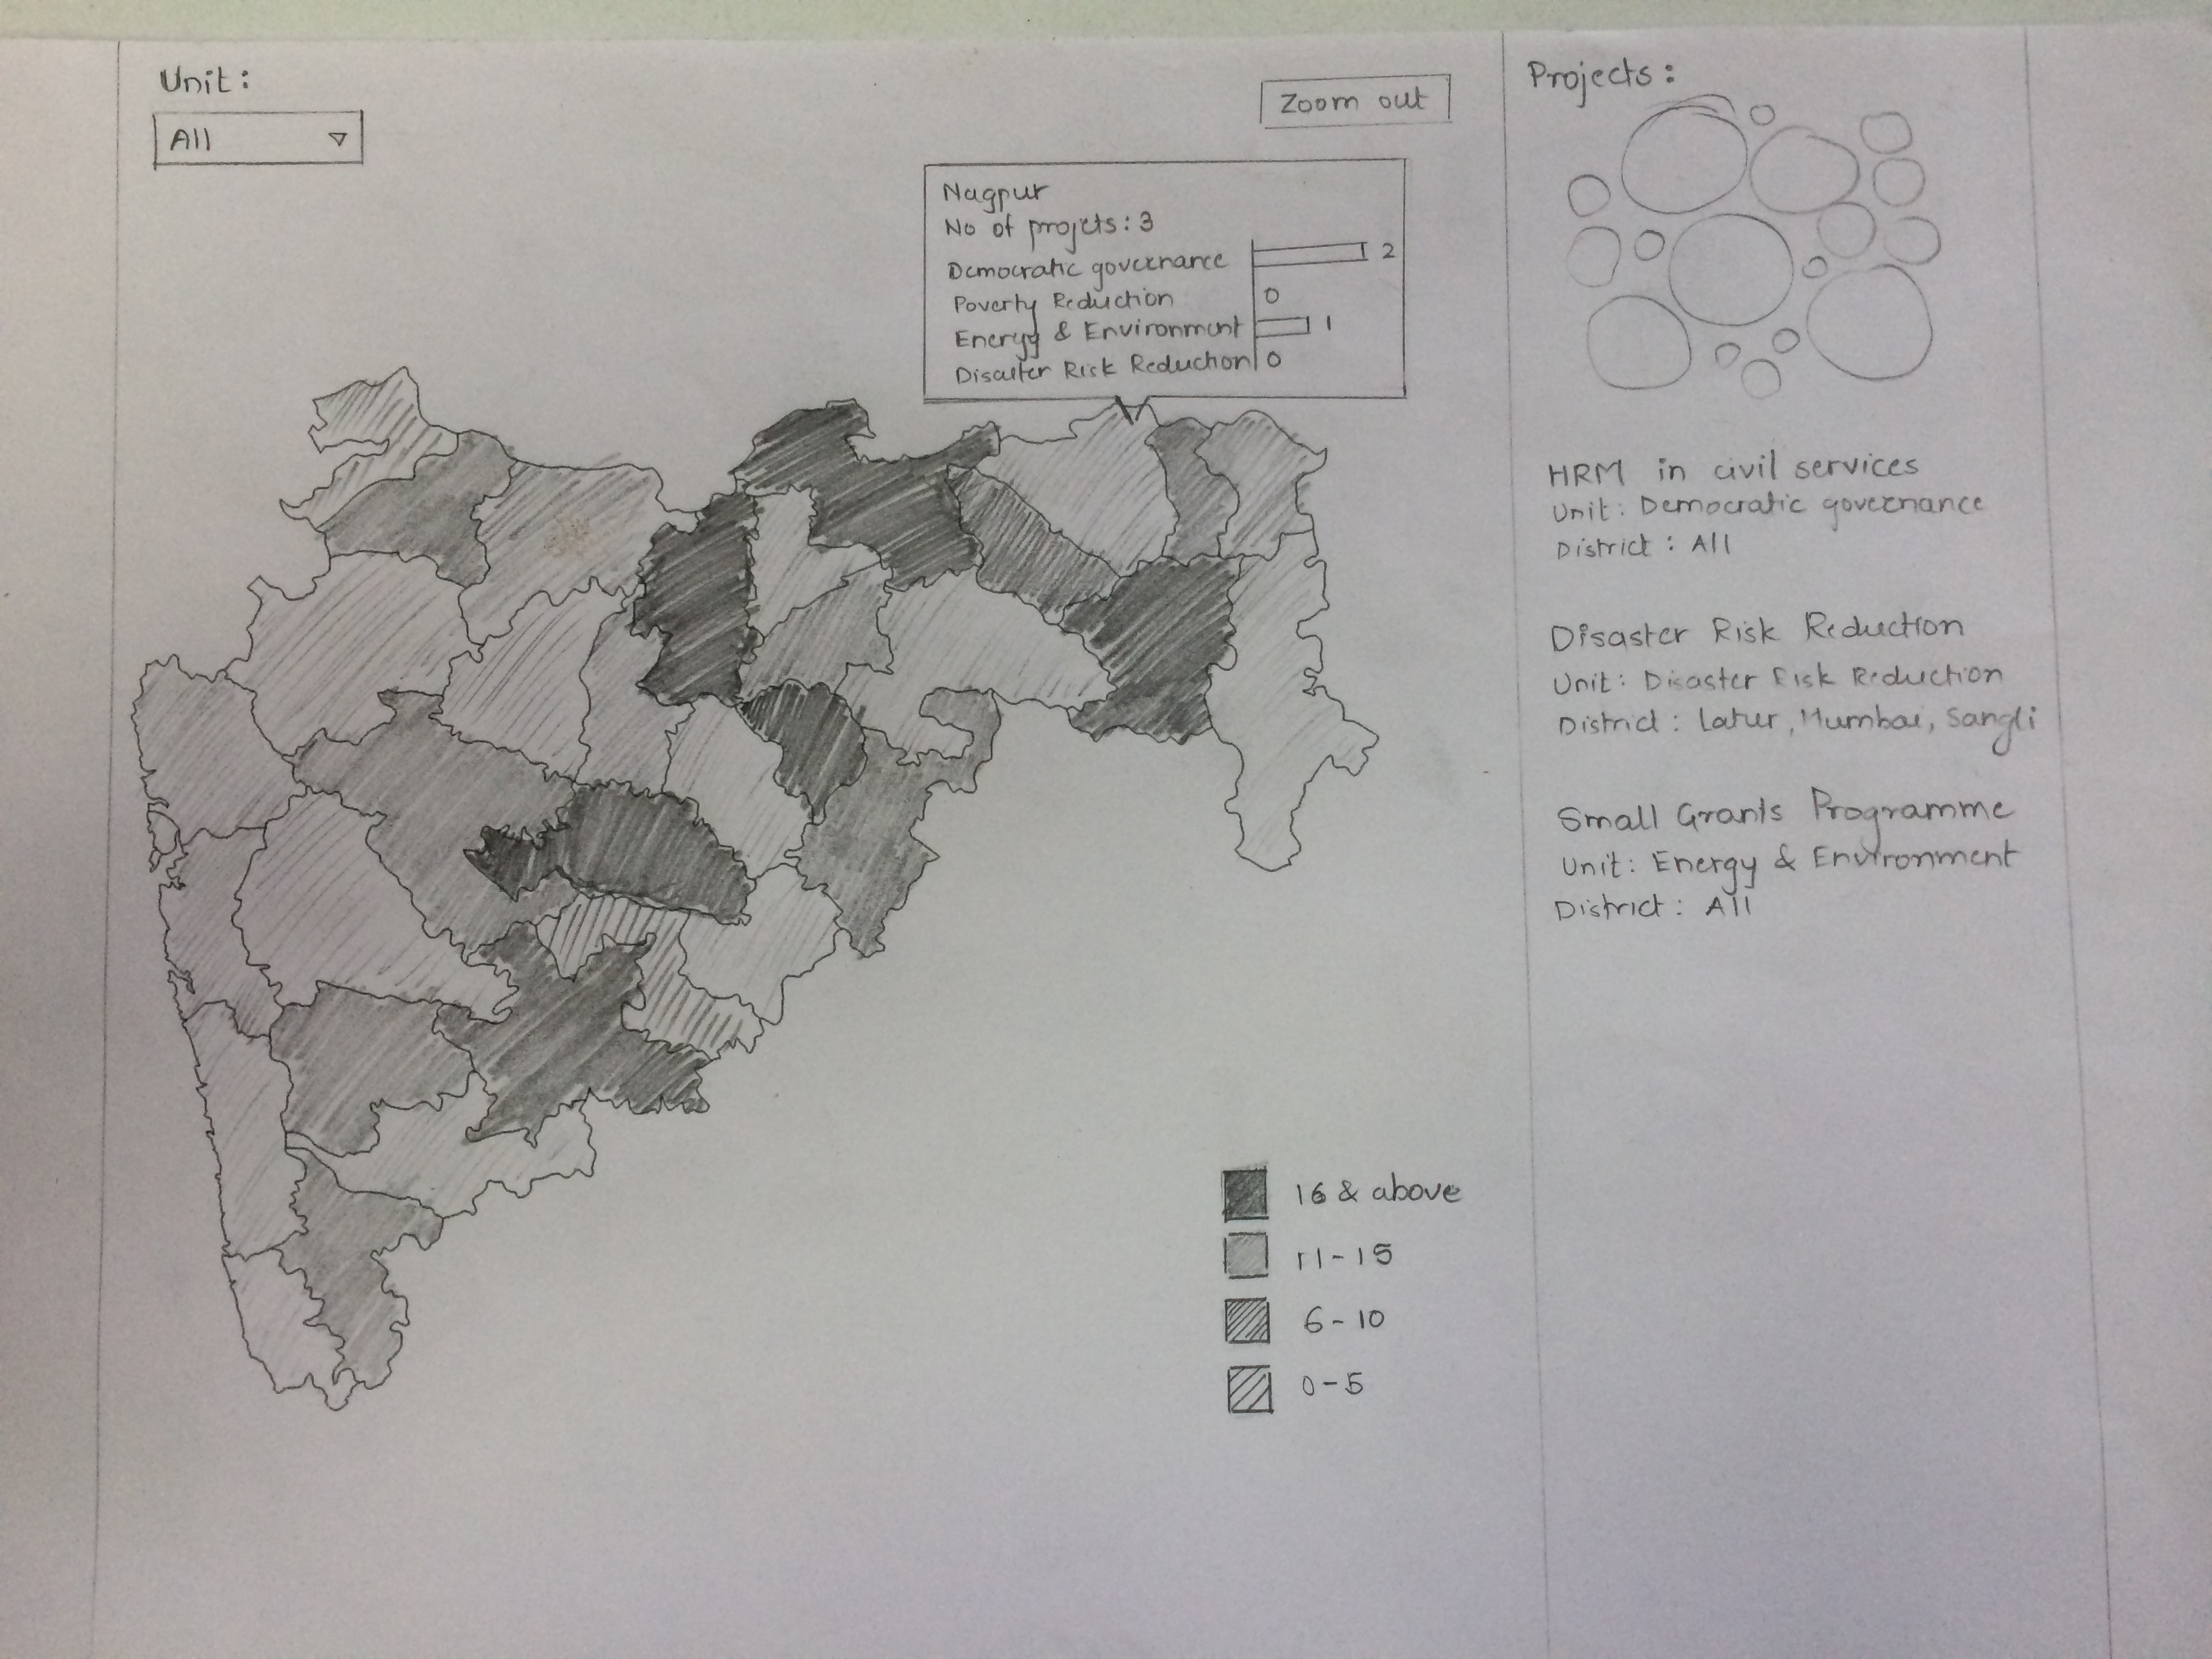 Unit:
All
Zoom out
Nagpur
No of projcts: 3
Democratic governance 2
Poverty Reduction 0
Energy & Environment 1
Disaster Risk Reduction 0
16 & above
11-15
6-10
0-5
Projects:
HRM in civil services
Unit: Democratic governance
District: All
Disaster Risk Reduction
Unit: Disaster Risk Reduction
District: Latur, Mumbai, Sangli
Small Grants Programme
Unit: Energy & Environment
District: All